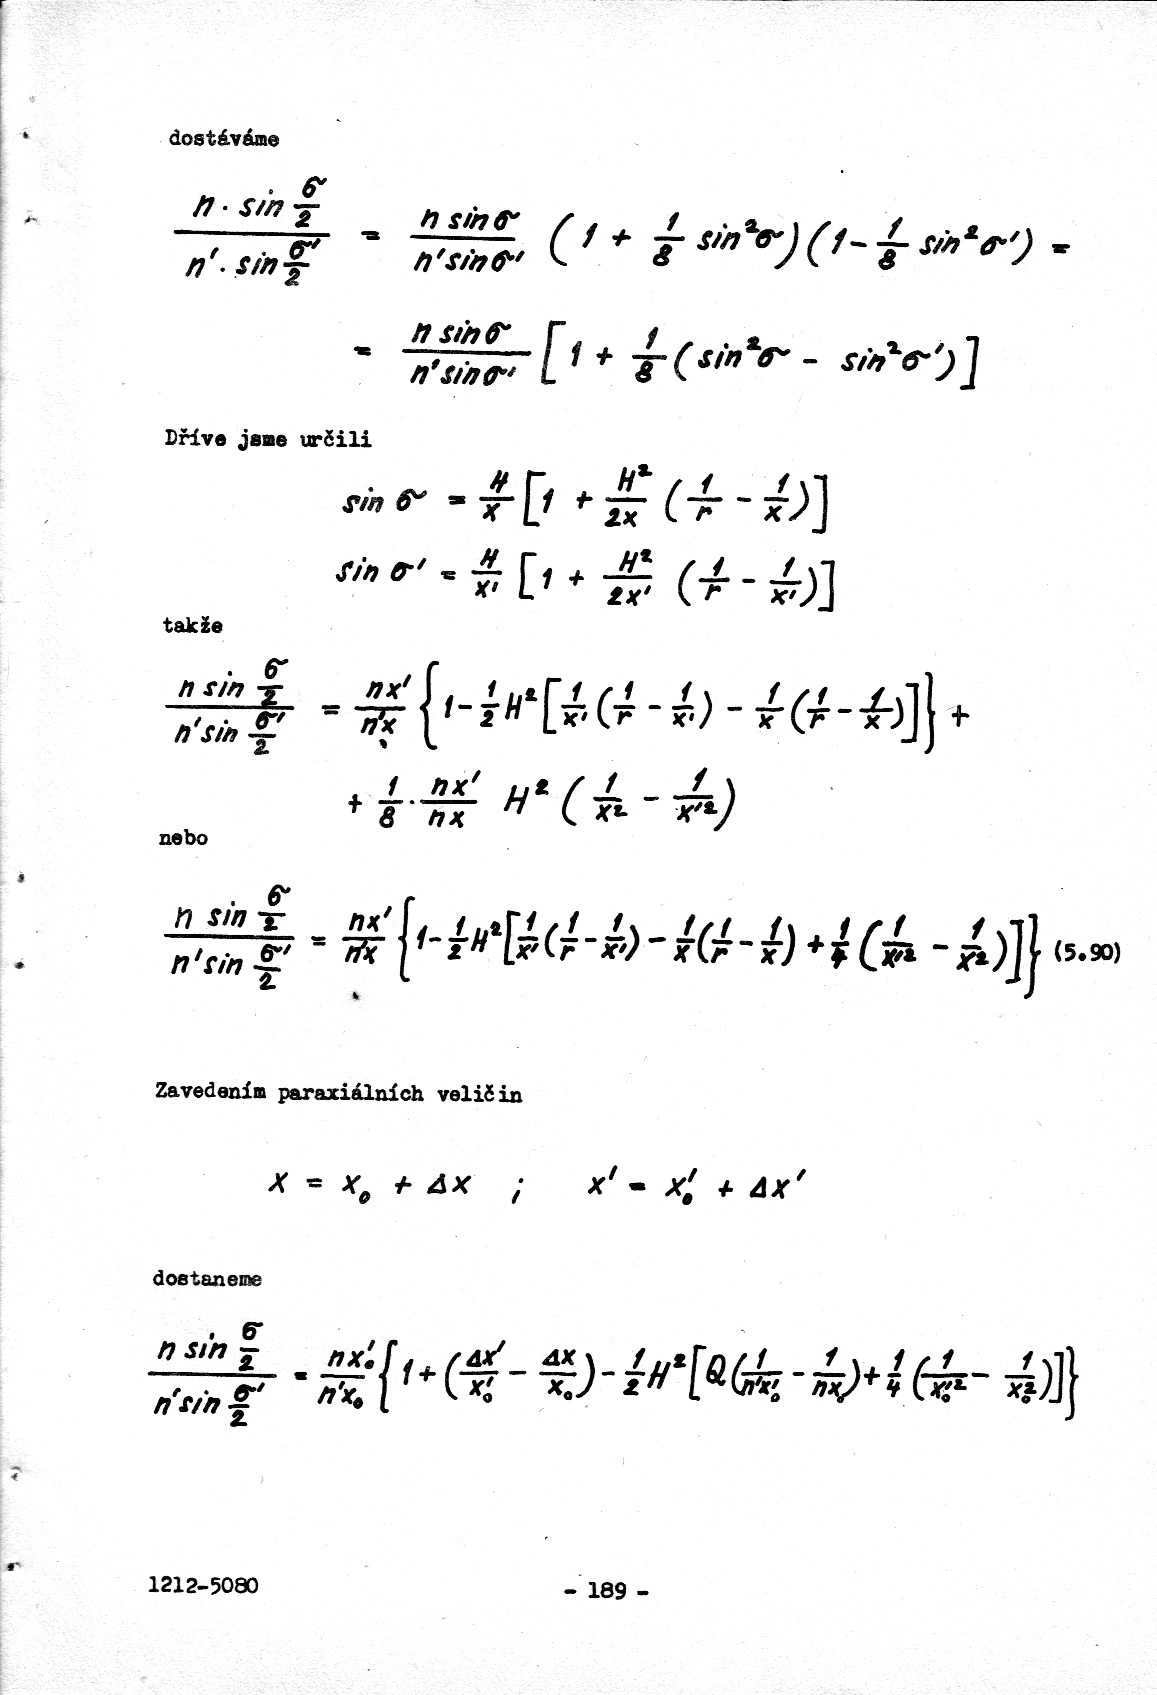 dostáváme
\frac{n \cdot \sin \frac{σ}{2}}{n' \cdot \sin \frac{σ'}{2}} = \frac{n \sin σ}{n' \sin σ'} (1 + \frac{1}{8} \sin^2 σ)(1 - \frac{1}{8} \sin^2 σ') =
= \frac{n \sin σ}{n' \sin σ'} [1 + \frac{1}{8} (\sin^2 σ - \sin^2 σ')]
Dříve jsme určili
\sin σ = \frac{H}{x} [1 + \frac{H^2}{2x} (\frac{1}{r} - \frac{1}{x})]
\sin σ' = \frac{H}{x'} [1 + \frac{H^2}{2x'} (\frac{1}{r} - \frac{1}{x'})]
takže
\frac{n \sin \frac{σ}{2}}{n' \sin \frac{σ'}{2}} = \frac{nx'}{n'x} \{1 - \frac{1}{2} H^2 [\frac{1}{x'} (\frac{1}{r} - \frac{1}{x'}) - \frac{1}{x} (\frac{1}{r} - \frac{1}{x})]\} +
+ \frac{1}{8} \cdot \frac{nx'}{nx} H^2 (\frac{1}{x^2} - \frac{1}{x'^2})
nebo
\frac{n \sin \frac{σ}{2}}{n' \sin \frac{σ'}{2}} = \frac{nx'}{n'x} \{1 - \frac{1}{2} H^2 [\frac{1}{x'} (\frac{1}{r} - \frac{1}{x'}) - \frac{1}{x} (\frac{1}{r} - \frac{1}{x}) + \frac{1}{4} (\frac{1}{x'^2} - \frac{1}{x^2})]\} (5.90)
Zavedením paraxiálních veličin
x = x_0 + Δx ; x' = x'_0 + Δx'
dostaneme
\frac{n \sin \frac{σ}{2}}{n' \sin \frac{σ'}{2}} = \frac{nx'_0}{n'x_0} \{1 + (\frac{Δx'}{x'_0} - \frac{Δx}{x_0}) - \frac{1}{2} H^2 [Q (\frac{1}{n'x'_0} - \frac{1}{nx_0}) + \frac{1}{4} (\frac{1}{x'^2_0} - \frac{1}{x^2_0})]\}
1212-5080
- 189 -